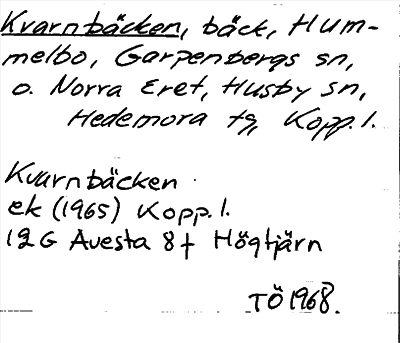 Kvarnbäcken, bäck, Hum-
melbo, Garpenbergs sn,
o. Norra Eret, Husby sn,
Hedemora tg, Kopp. l.
Kvarnbäcken
ek (1965) Kopp. l.
12G Avesta 8f Högtjärn
TÖ 1968.